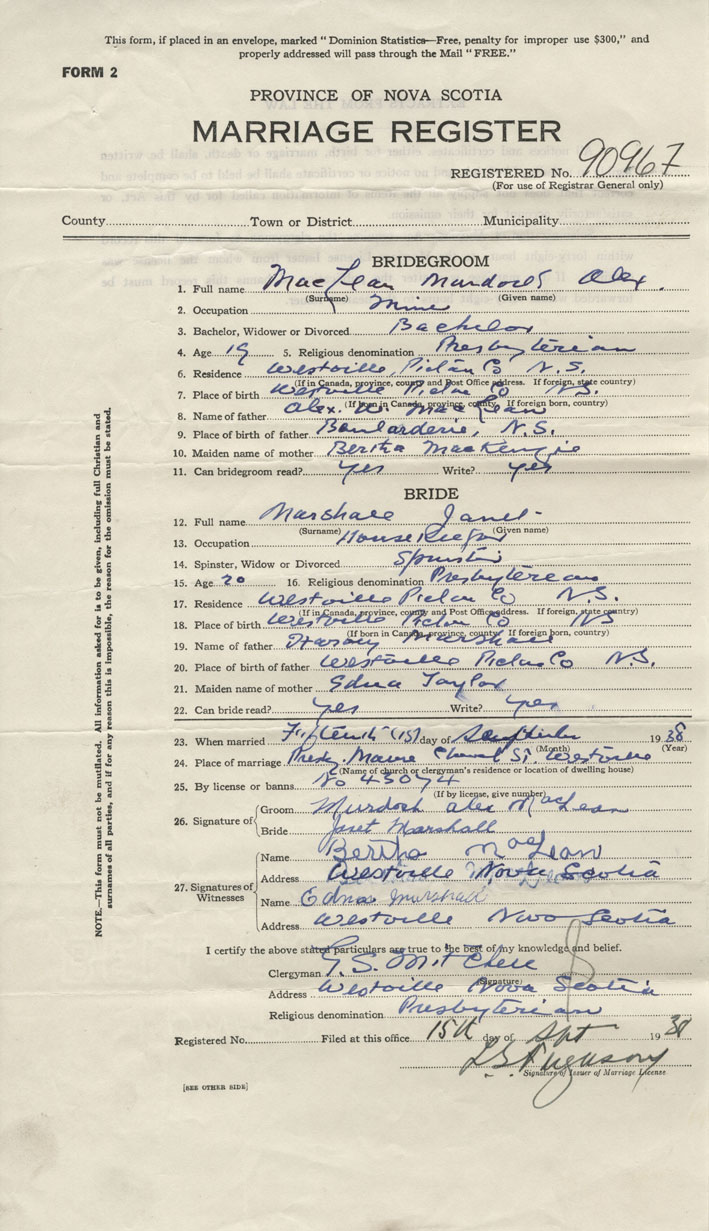 This form, if placed in an envelope, marked "Dominion Statistics—Free, penalty for improper use $300," and
properly addressed will pass through the Mail "FREE."
FORM 2
PROVINCE OF NOVA SCOTIA
MARRIAGE REGISTER
REGISTERED No. 90967
(For use of Registrar General only)
County Town or District Municipality
BRIDEGROOM
1. Full name MacLean Murdoch Alex.
(Surname) (Given name)
2. Occupation Miner
3. Bachelor, Widower or Divorced Bachelor
4. Age 19 5. Religious denomination Presbyterian
6. Residence Westville, Pictou Co N.S.
(If in Canada, province, county and Post Office address. If foreign, state country)
7. Place of birth Westville Pictou Co N.S.
(If born in Canada, province, county. If foreign born, county)
8. Name of father Alex. W. MacLean
9. Place of birth of father Boularderie, N.S.
10. Maiden name of mother Bertha MacKenzie
11. Can bridegroom read? Yes Write? yes
BRIDE
12. Full name Marshall Janet
(Surname) (Given name)
13. Occupation Housekeeper
14. Spinster, Widow or Divorced Spinster
15. Age 20 16. Religious denomination Presbyterian
17. Residence Westville Pictou Co N.S.
(If in Canada, province, county and Post Office address. If foreign, state country)
18. Place of birth Westville Pictou Co NS
(If born in Canada, province, county. If foreign born, county)
19. Name of father Marshall
20. Place of birth of father Westville Pictou Co N.S.
21. Maiden name of mother Edna Taylor
22. Can bride read? yes Write? yes
23. When married Fifteenth (15) day of September 1938
(Month) (Year)
24. Place of marriage Presby. Manse Church St. Westville
(Name of church or clergyman's residence or location of dwelling house)
25. By license or banns No 45074
(If by license, give number)
26. Signature of Groom Murdoch Alex MacLean
Bride Janet Marshall
27. Signatures of Witnesses
Name Bertha MacLean
Address Westville Nova Scotia
Name Edna Marshall
Address Westville Nova Scotia
I certify the above stated particulars are true to the best of my knowledge and belief.
Clergyman G. S. Mitchell
(Signature)
Address Westville Nova Scotia
Religious denomination Presbyterian
Registered No. Filed at this office 15th day of Spt 1938
Ferguson
Signature of Issuer of Marriage License
[SEE OTHER SIDE]
NOTE.—This form must not be mutilated. All information asked for is to be given, including full Christian and
surnames of all parties, and if for any reason this is impossible, the reason for the omission must be stated.